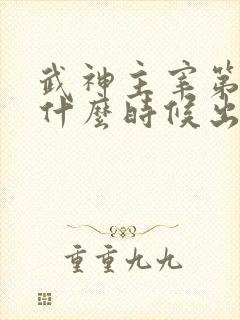 武神主宰第
什麼時候出
重重九九